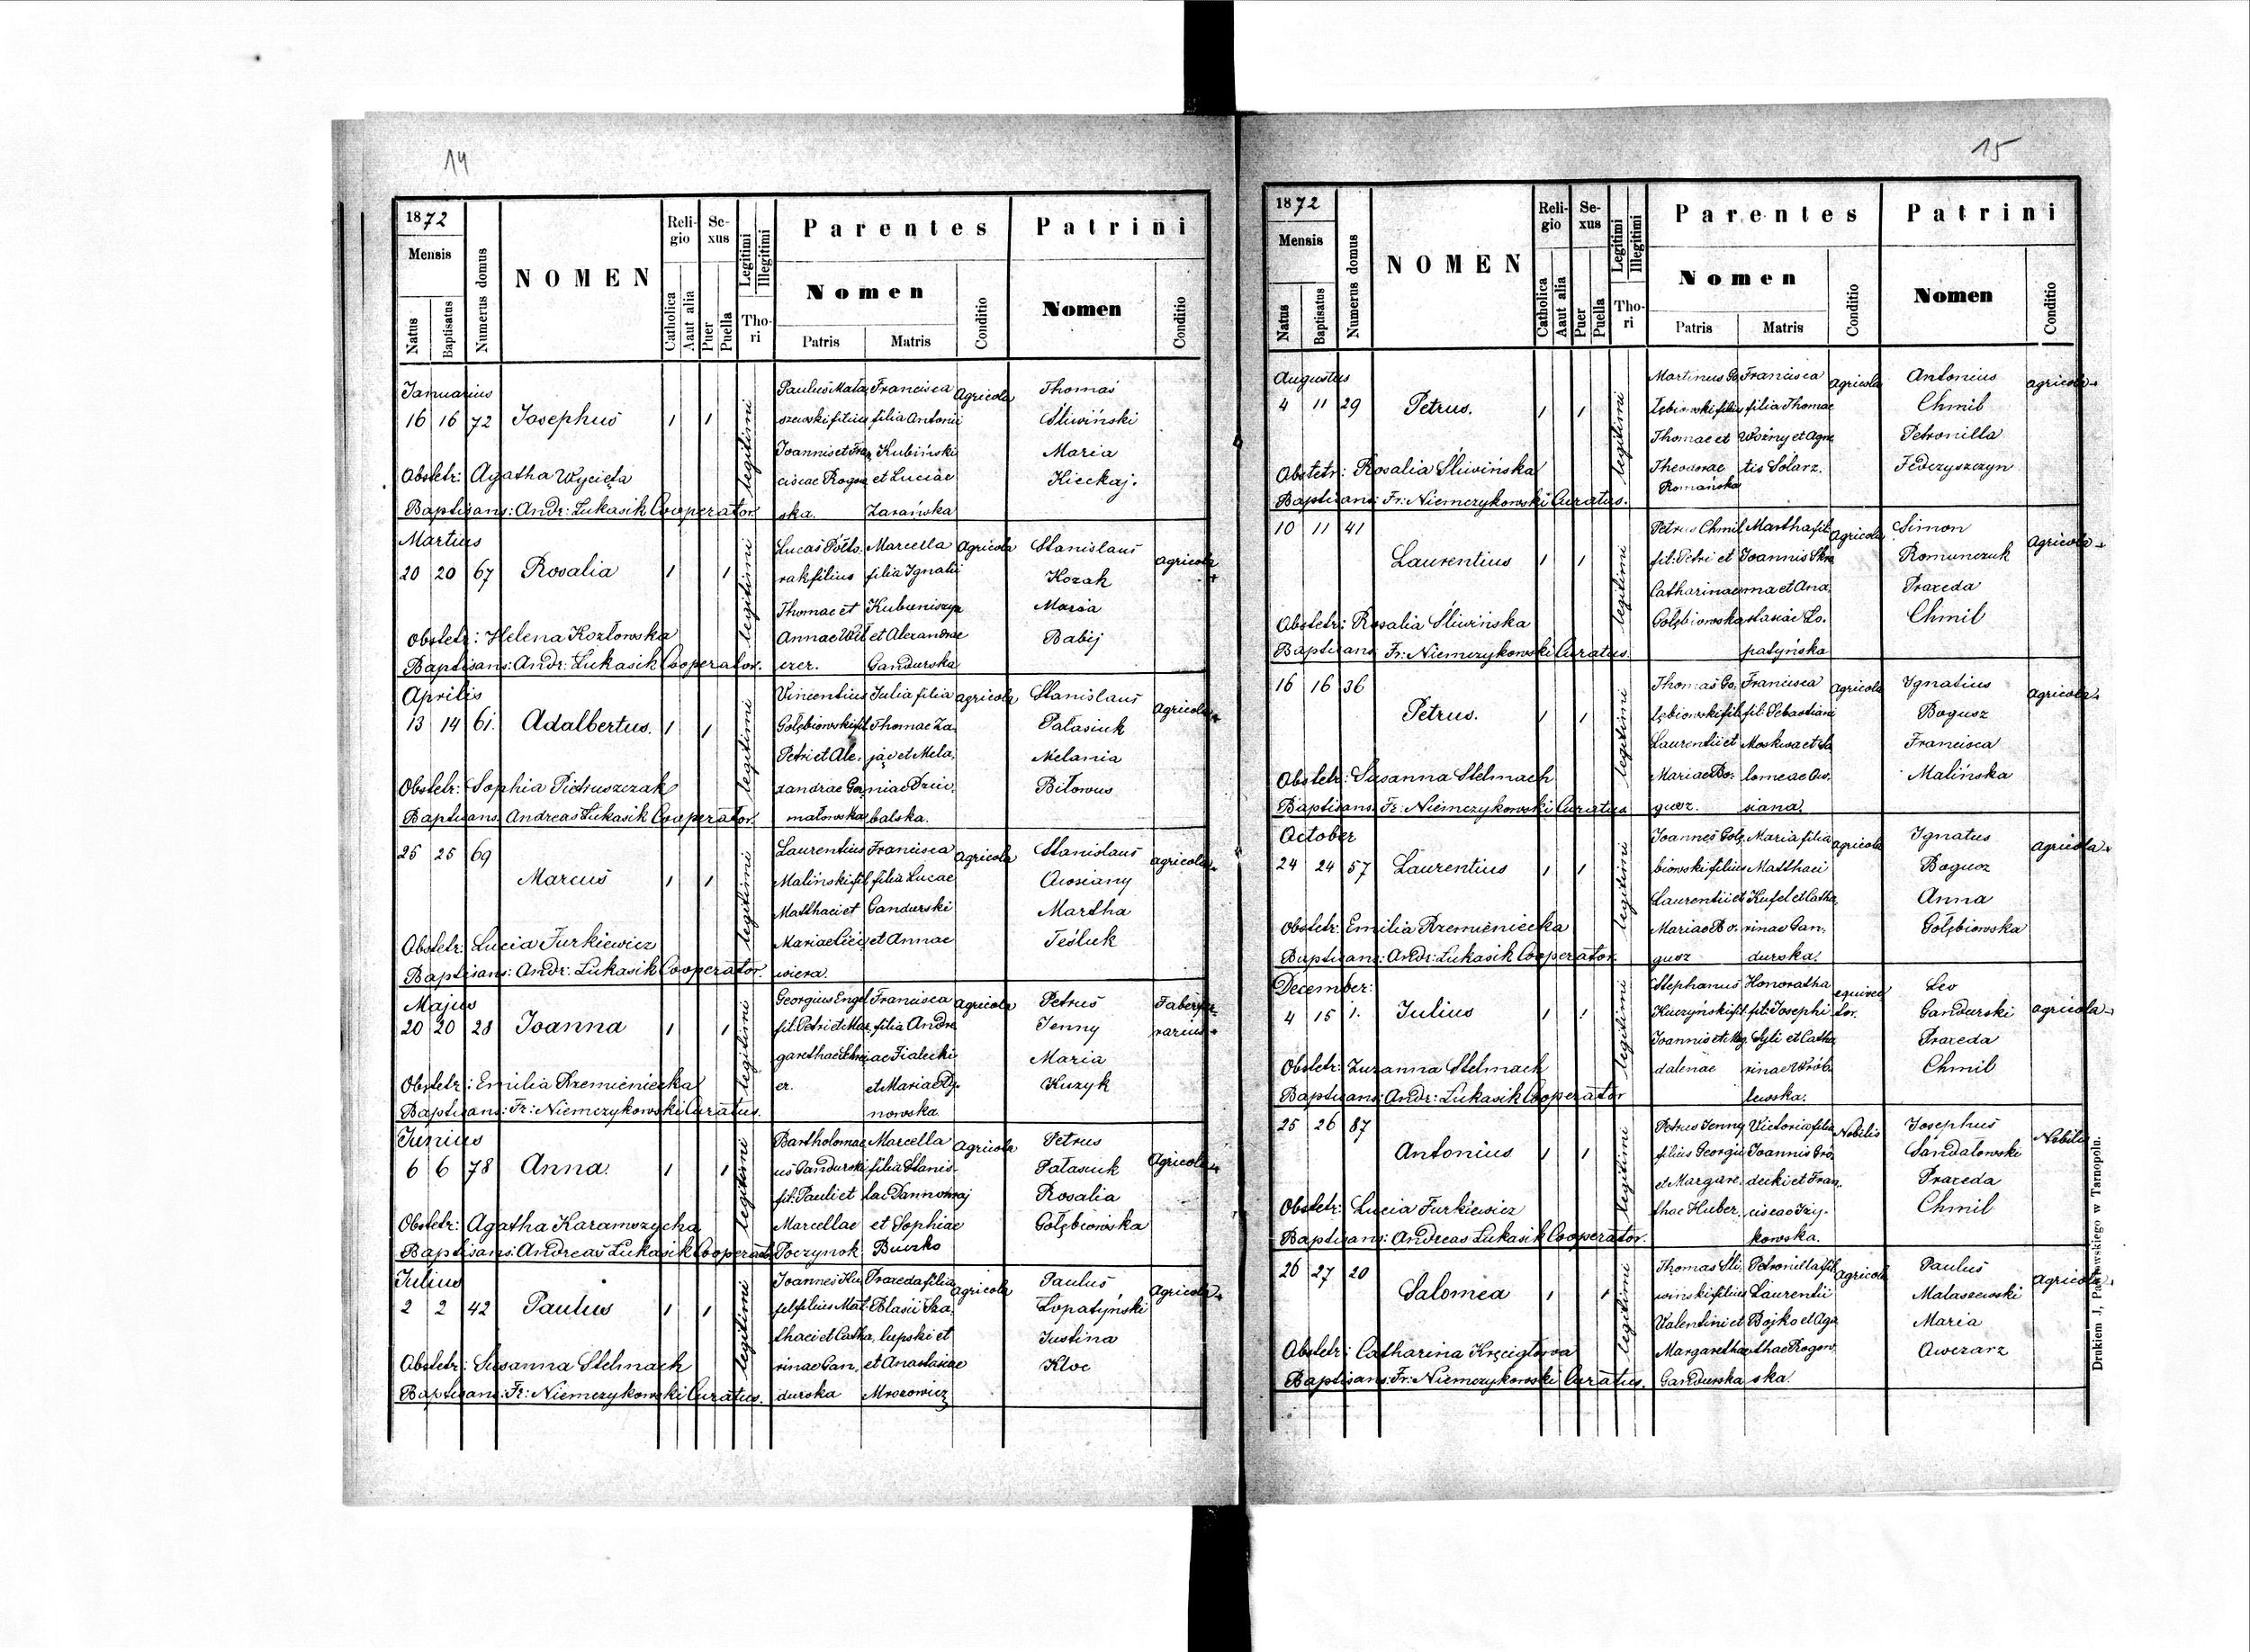 14
1872
Mensis
Natus
Baptisatus
Numerus domus
NOMEN
Religio
Catholica
Aaut alia
Sexus
Puer
Puella
Legitimi
Illegitimi
Thori
Parentes
Nomen
Patris
Matris
Conditio
Patrini
Nomen
Conditio
Januarius
16 16 72 Josephus 1 1 legitimi
Paulus Mata, Francisca Agricola Thomas
szewski filius filia Antonii Śliwiński
Joannis et Fran, Kubiński Maria
ciscae Rogow et Luciae Kieckaj.
ska. Zarańska
Obstetr: Agatha Wycięta
Baptisans: Andr: Łukasik Cooperator.
Martius
20 20 67 Rosalia 1 1 legitimi
Lucas Półto. Marcella Agricola Stanislaus agricola
rak filius filia Ignatii Kozak
Thomae et Kubuniszyn Maria
Annae et Alexandrae Babij
czer. Gandurska
Obstetr: Helena Kozłowska
Baptisans: Andr: Łukasik Cooperator.
Aprilis
13 14 61. Adalbertus. 1 1 legitimi
Vincentius Julia filia agricola Stanislaus agricola
Gołębiowski fil Thomae Za. Palasiuk
Petri et Ale. jąc et Mela. Melania
xandrae Gor, niae Dziu. Biłowus
matowska balska.
Obstetr: Sophia Pietruszczak
Baptisans. Andreas Łukasik Cooperator.
25 25 69 Marcus 1 1 legitimi
Laurentius Francisca agricola Stanislaus agricola
Malinski fil filia Lucae Owsiany
Matthaei et Gandurski Martha
Mariae et Annae Teśluk
wiera.
Obstetr: Lucia Jurkiewicz
Baptisans: Andr: Łukasik Cooperator.
Majus
20 20 28 Joanna 1 1 legitimi
Georgius Engel Francisca agricola Petrus Faber fer-
fil. Petri et Mar, filia Andre Jenny rarius
garethae ae Fialecki Maria
er. et Mariae Ry. Kuzyk
nowska
Obstetr: Emilia Rzemieniecka
Baptisans: Fr: Niemczykowski Curatus.
Junius
6 6 78 Anna. 1 1 legitimi
Bartholomae Marcella Agricola Petrus Agricola
us Gandurski filia Stanis- Pałasiuk
fil. Pauli et lai Pannokraj Rosalia
Marcellae et Sophiae Gołębiowska
Poczynok Buczko
Obstetr: Agatha Karamszycha
Baptisans: Andreas Łukasik Cooperator
Julius
2 2 42 Paulus 1 1 legitimi
Joannes Ku, Praxeda filia agricola Paulus Agricola
fel filius Mat. Blasii Ska, Łopatyński
thaei et Catha, lupski et Justina
rinae Gan, et Anastasiae Kloc
durska Mrozowicz
Obstetr: Susanna Stelmach
Baptisans: Fr: Niemczykowski Curatus.
15
1872
Mensis
Natus
Baptisatus
Numerus domus
NOMEN
Religio
Catholica
Aaut alia
Sexus
Puer
Puella
Legitimi
Illegitimi
Thori
Parentes
Nomen
Patris
Matris
Conditio
Patrini
Nomen
Conditio
Augustus
4 11 29 Petrus. 1 1 legitimi
Martinus Go Francisca agricola Antonius agricola
łębiowski filius filia Thomae Chmil
Thomae et Woźny et Agne Petronilla
Theodorae tis Solarz. Fedczyszczyn
Romańska
Obstetr: Rosalia Śliwińska
Baptisans: Fr: Niemczykowski Curatus.
10 11 41 Laurentius 1 1 legitimi
Petrus Chmil Martha fil. Agricola Simon Agricola
fil. Petri et Joannis Skra Romunczuk
Catharinae ma et Ana. Praxeda
Gołębiowska stasiae Ło. Chmil
patyńska
Obstetr: Rosalia Śliwińska
Baptisans Fr: Niemczykowski Curatus.
16 16 36 Petrus. 1 1 legitimi
Thomas Go. Francisca agricola Ignatius agricola
łębiowski fil. fil. Sebastiani Bogusz
Laurentii et Moskwa et Sa Francisca
Mariae Bo. lomeae Ow. Malińska
gusz. siana.
Obstetr: Susanna Stelmach
Baptisans: Fr: Niemczykowski Curatus
October
24 24 57 Laurentius 1 1 legitimi
Joannes Gołę Maria filia agricola Ignatus agricola
biowski filius Matthaei Bogusz
Laurentii et Kufel et Catha Anna
Mariae Bo. rinae Gan. Gołębiowska
gusz durska.
Obstetr: Emilia Rzemieniecka
Baptisans: Andr: Łukasik Cooperator.
December:
4 15 1. Julius 1 1 legitimi
Stephanus Honoratha Leo agricola
Kuczyński fil fil. Josephi tor. Gandurski
Joannis et Mag. et Catha Praxeda
dalenae rinae Wrób. Chmil
lewska.
Obstetr: Zuzanna Stelmach
Baptisans: Andr: Łukasik Cooperator
25 26 87 Antonius 1 1 legitimi
Petrus Jenny Victoria filia Nobilis Josephus Nobilis
filius Georgii Joannis Gro. Sandałowski
et Margare. decki et Fran. Praxeda
thae Huber. ciscae Izy. Chmil
kowska.
Obstetr: Lucia Jurkiewicz
Baptisans: Andreas Łukasik Cooperator.
26 27 20 Salomea 1 1 legitimi
Thomas Śli. Petronilla fil. Agricola Paulus agricola
winski filius Laurentii Mataszewski
Valentini et Bojko et Aga Maria
Margarethae thae Rogow Owczarz
Gandurska ska.
Obstetr: Catharina Kręcigłowa
Baptisans: Fr: Niemczykowski Curatus.
Drukiem J, Pawłowskiego w Tarnopolu.